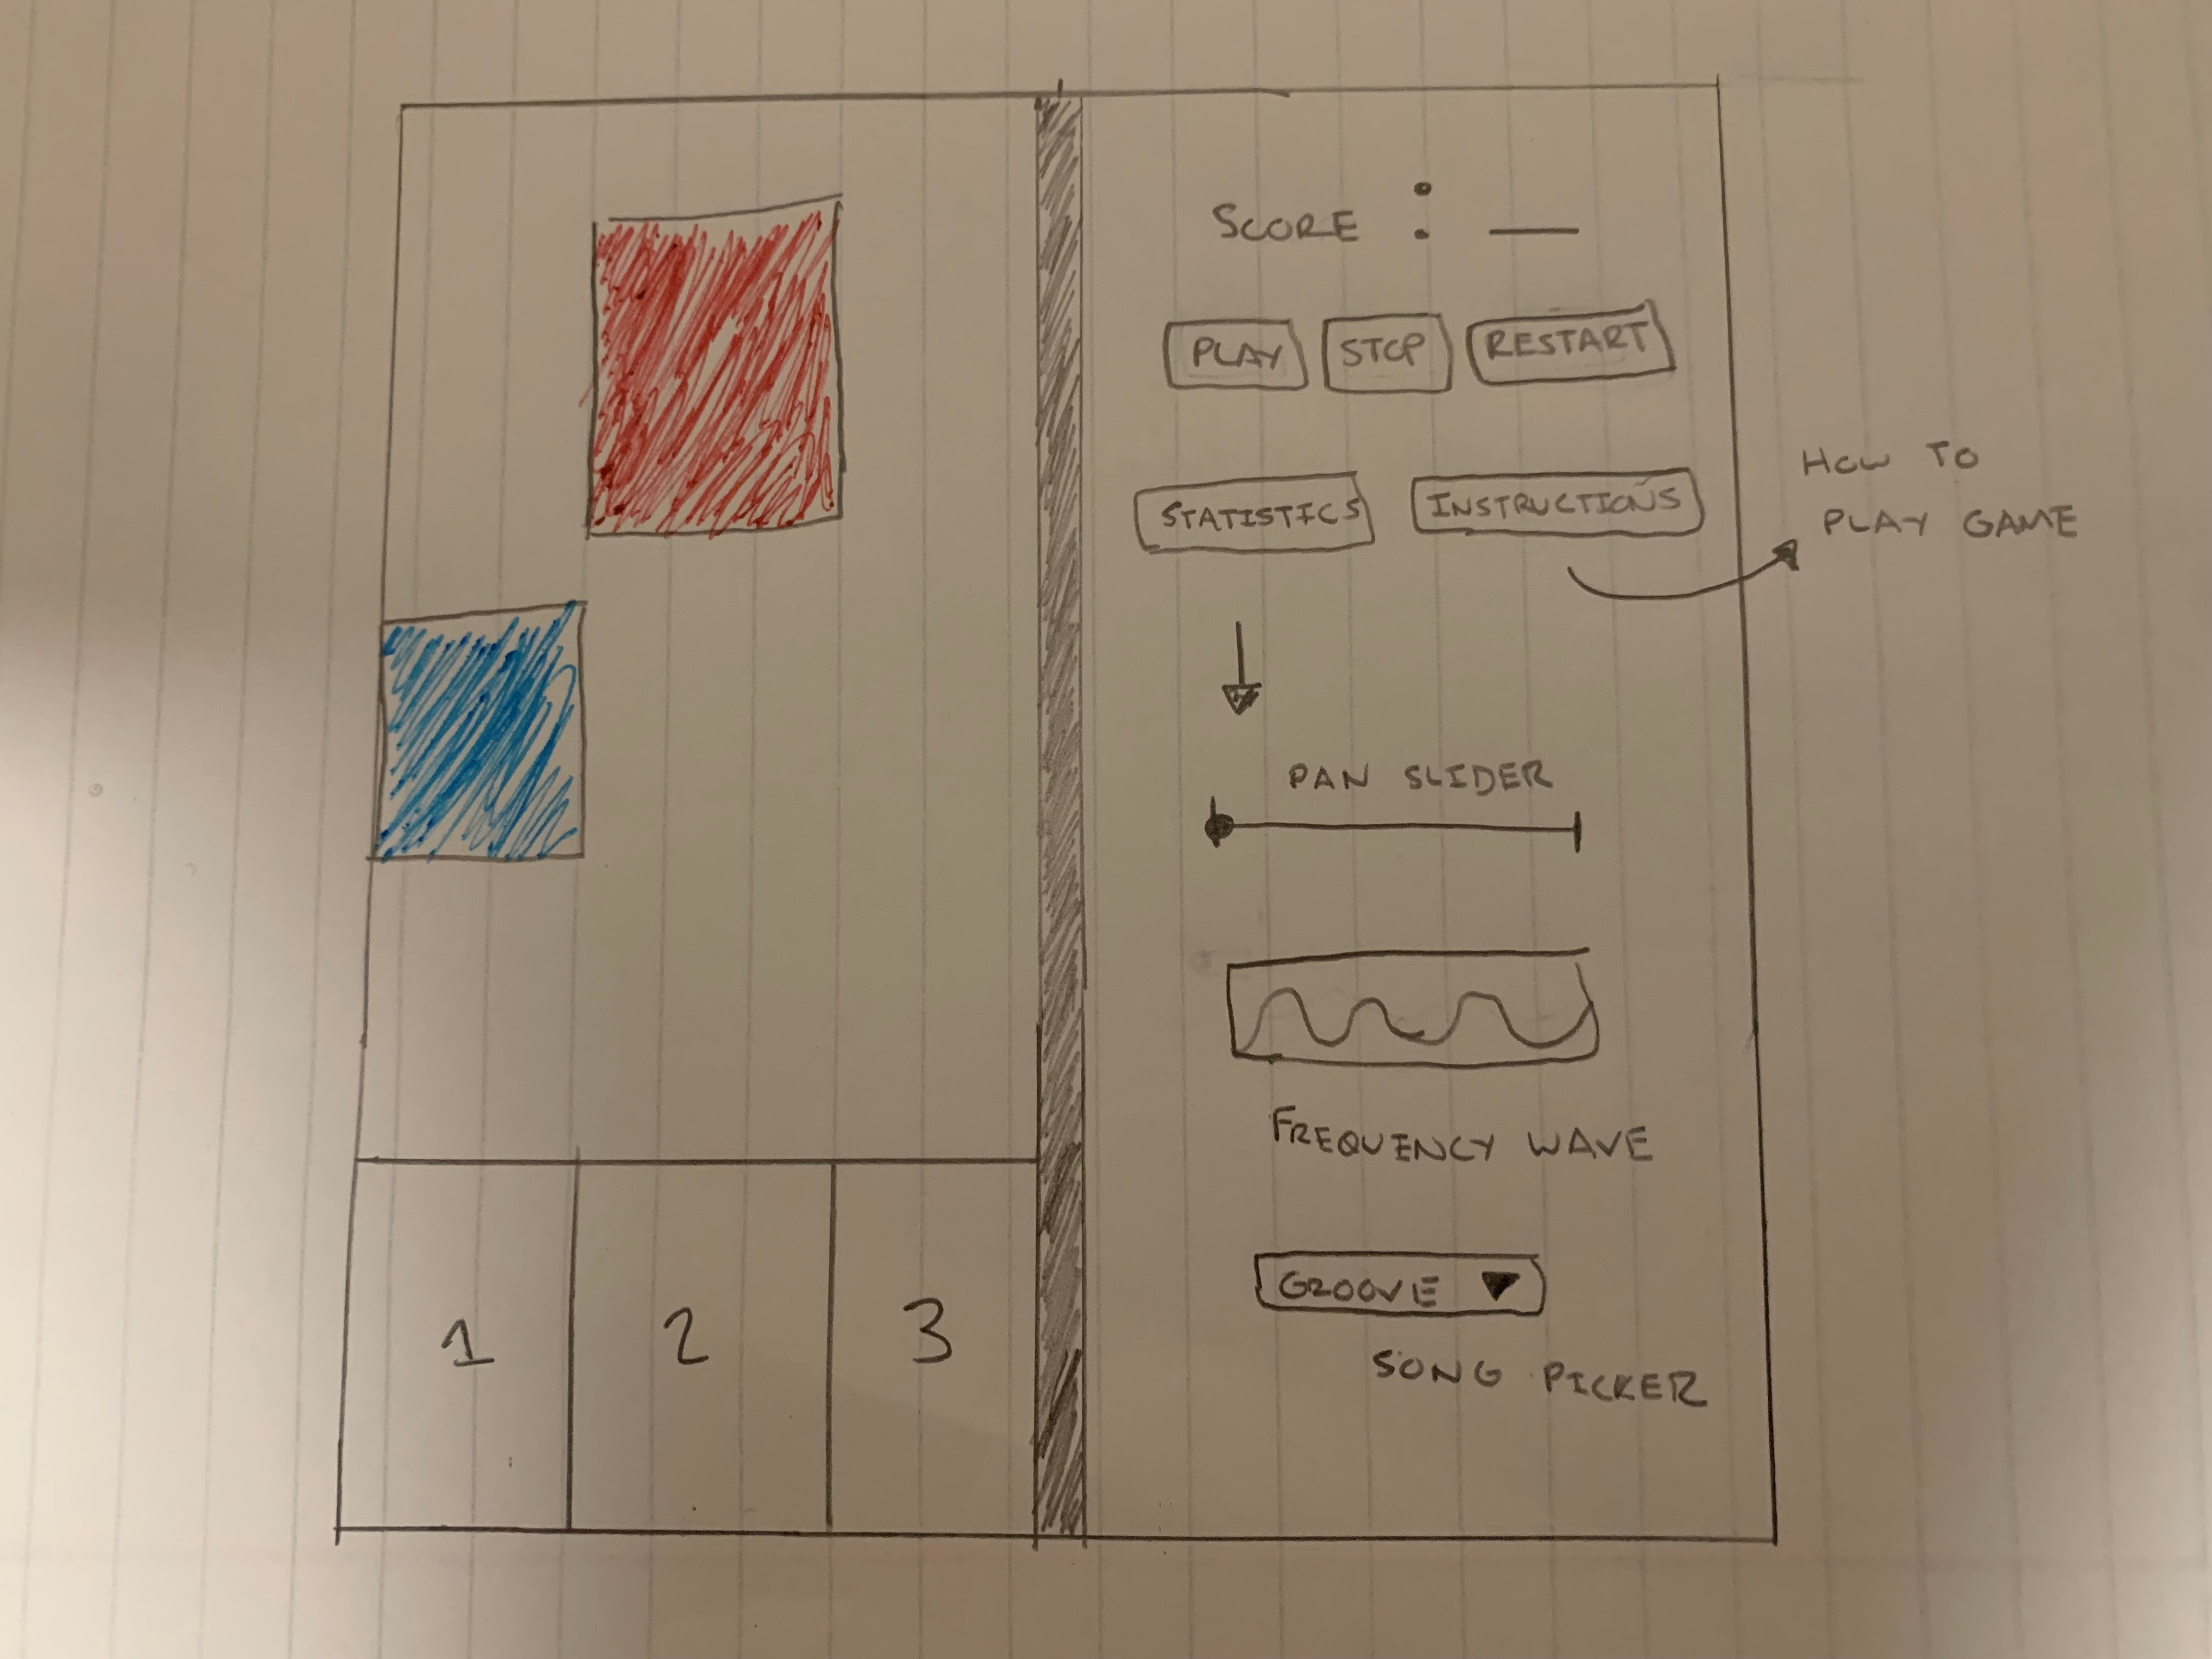 SCORE : __
PLAY STOP RESTART
STATISTICS INSTRUCTIONS
HOW TO
PLAY GAME
PAN SLIDER
FREQUENCY WAVE
GROOVE ▼
SONG PICKER
1 2 3